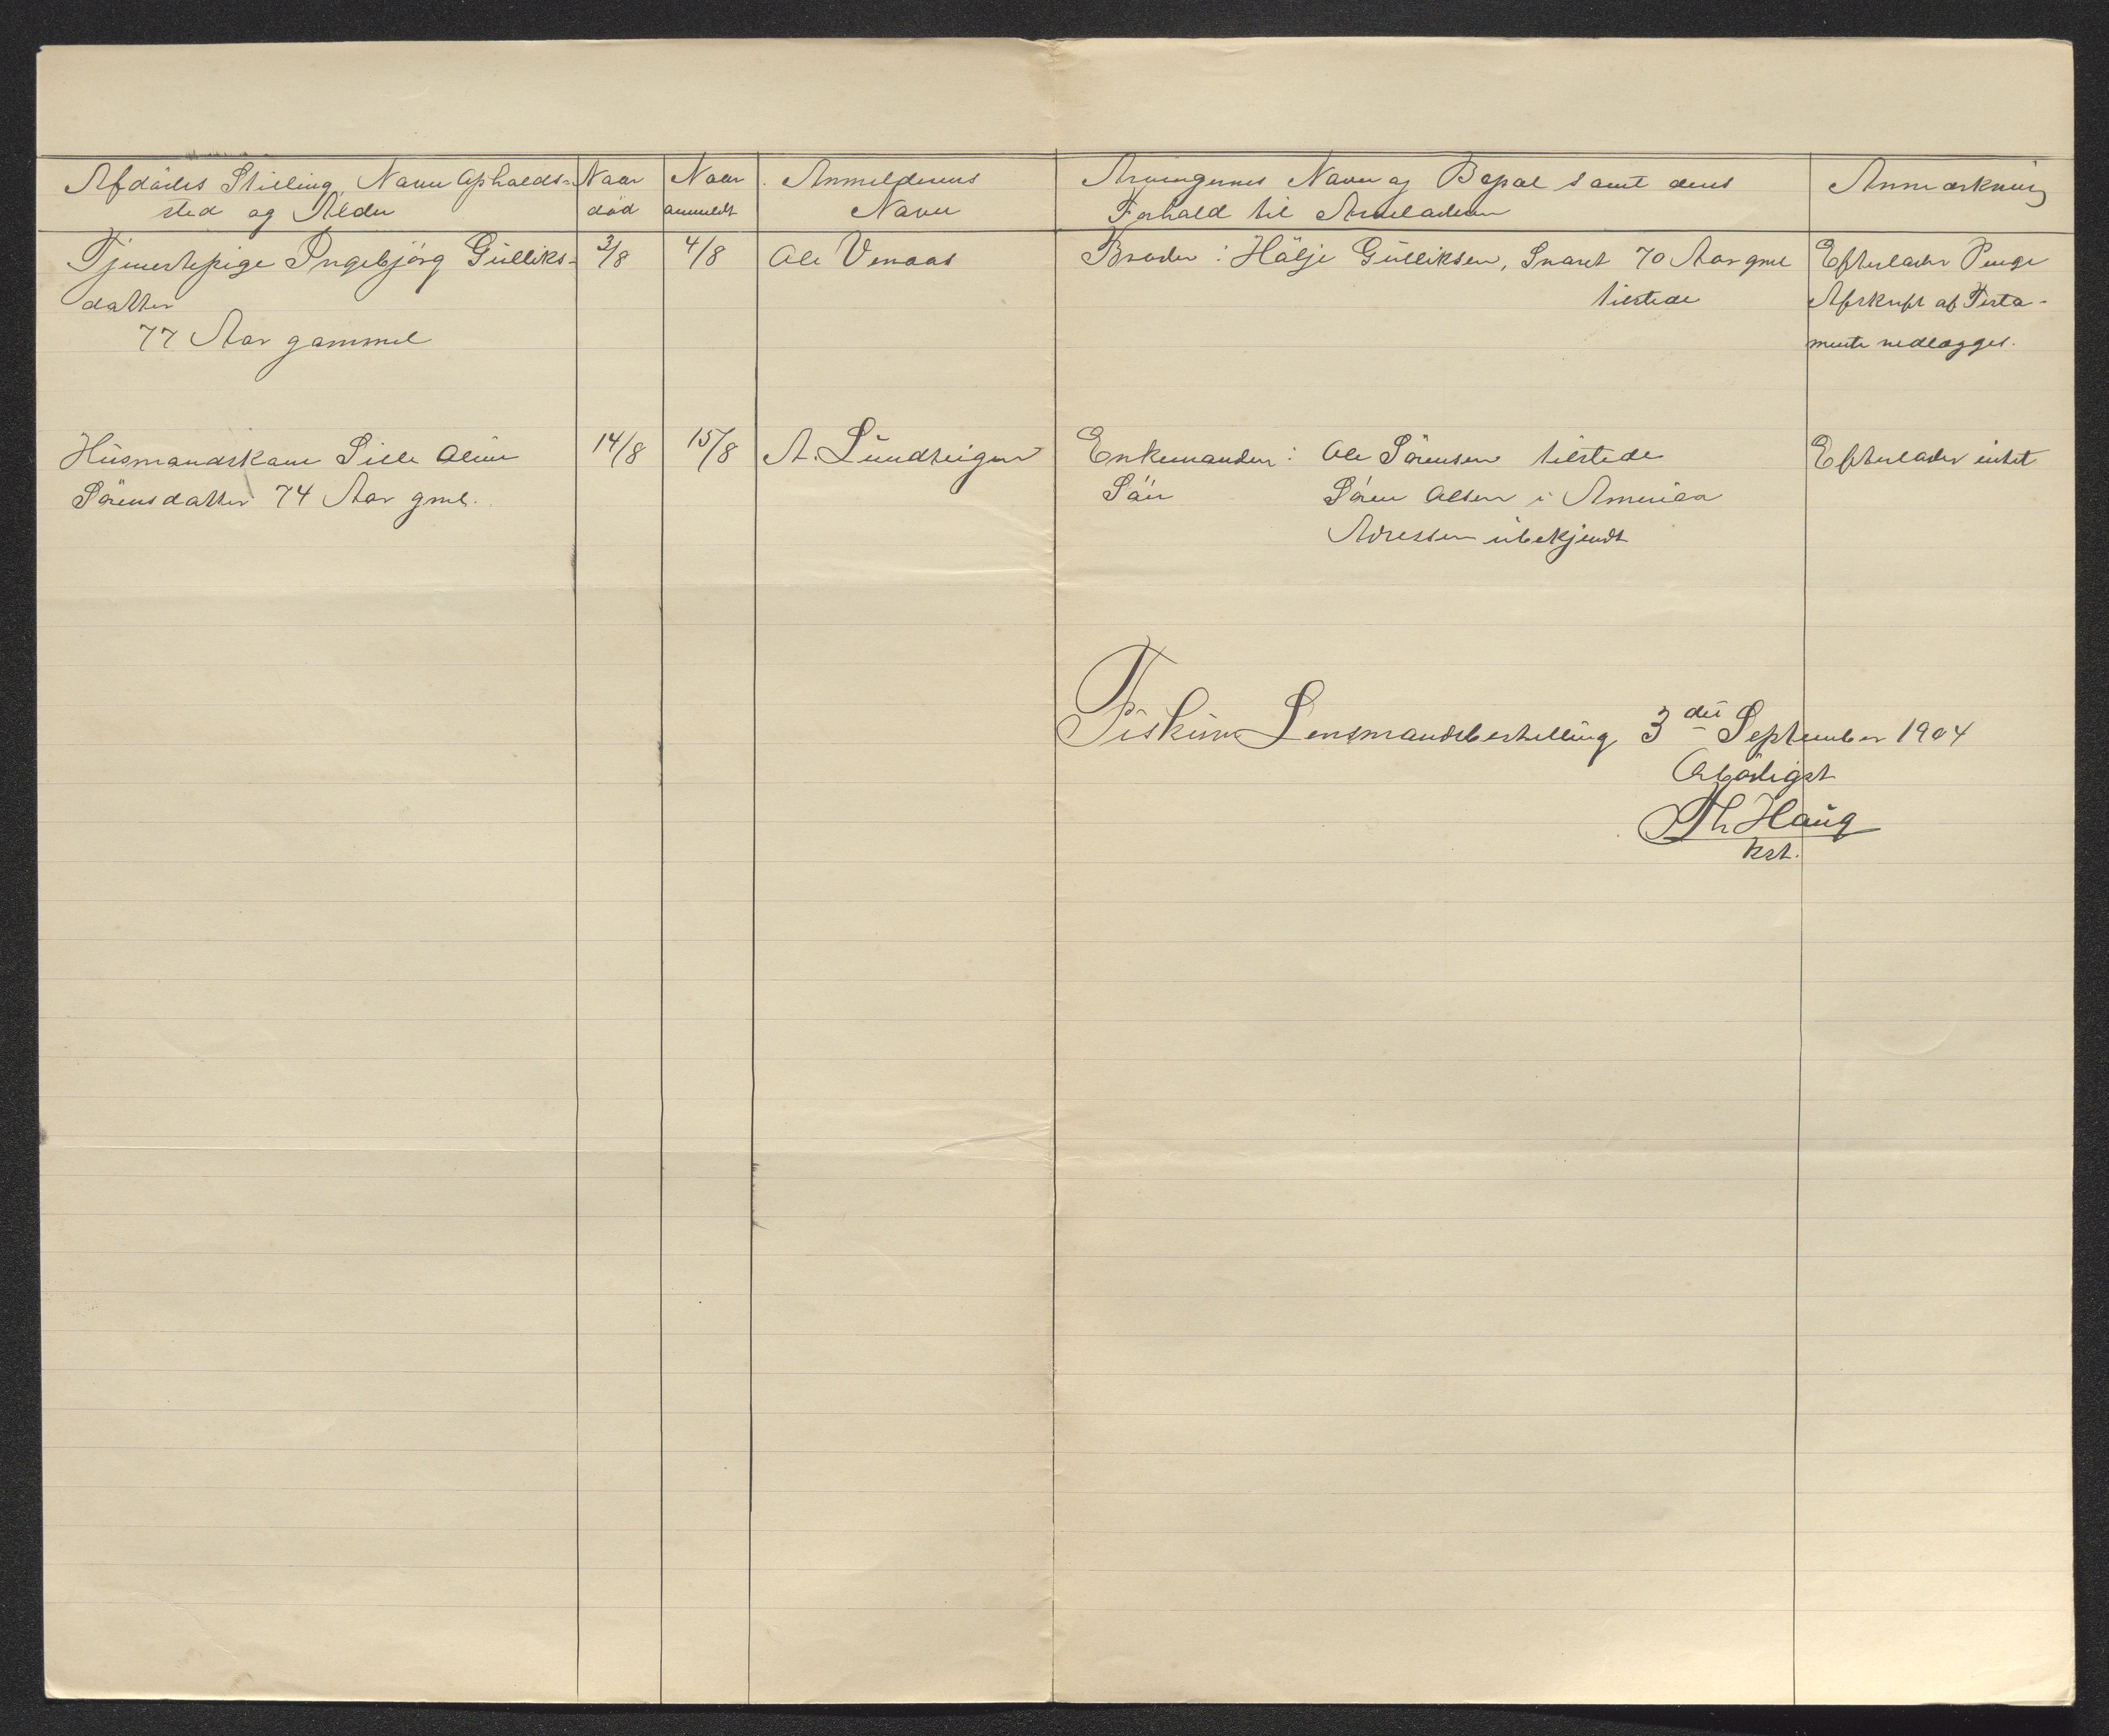 Afdødes Stilling, Navn Opholds-
sted og Alder
Naar
død
Naar
anmeldt
Anmelderens
Navn
Arvingernes Navn og Bopæl samt deres
Forhold til Arveladeren
Anmærkning
Tjenestepige Ingebjørg Gulliks-
datter
77 Aar gammel
3/8
4/8
Ole Venaas
Broder : Hølje Gulliksen, Snaret 70 Aar gml
tilstede
Efterlader Penge
Afskrift af Testa-
mente nedlægges.
Husmandskone Sille Oline
Sørensdatter 74 Aar gml.
14/8
15/8
A. Lundteigen
Enkemanden : Ole Sørensen tilstede
Søn Søren Olsen i America
Adressen ubekjendt
Efterlader intet
Fiskum Lensmandsbestilling 3die September 1904
Ærbødigst
Th. Haug
kst.